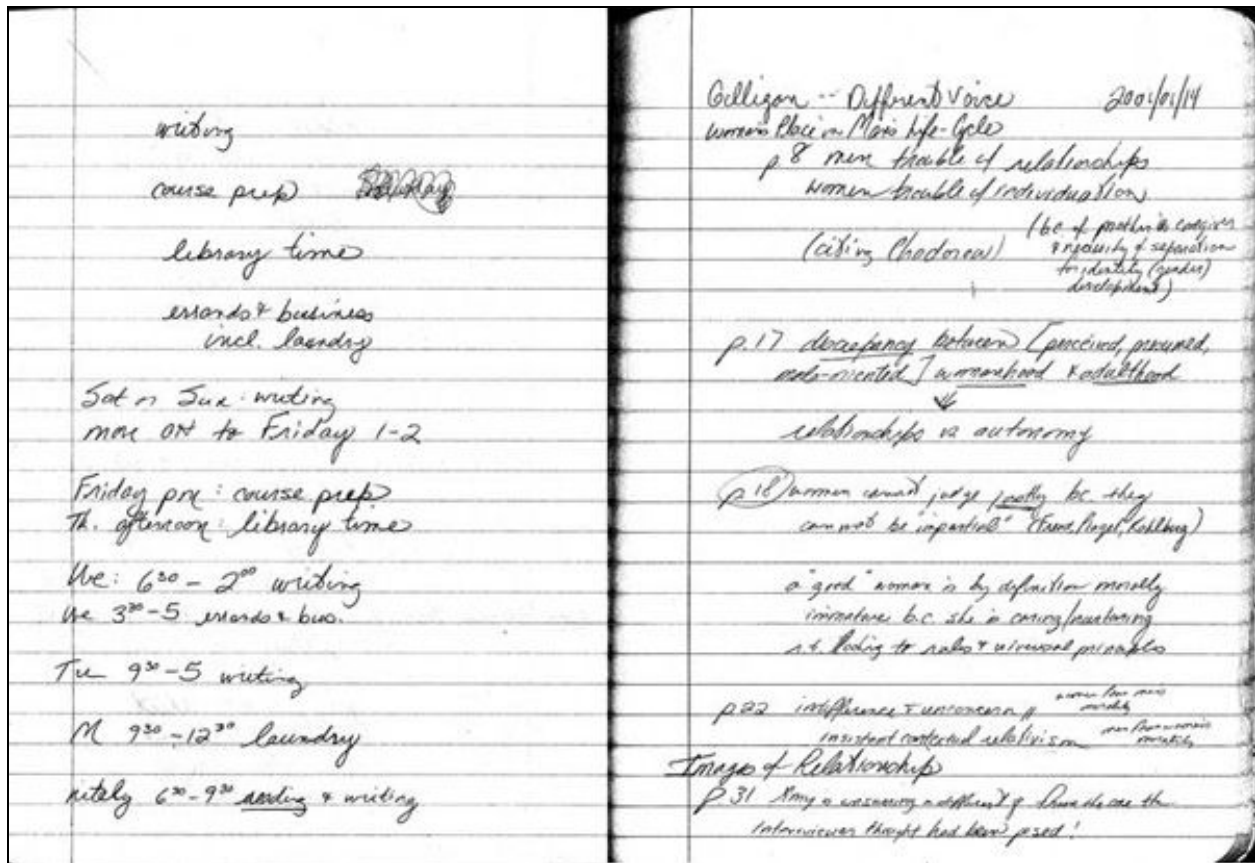 writing
course prep
library time
errands & business
incl. laundry
Sat or Sun: writing
move OH to Friday 1-2
Friday pm: course prep
Th. afternoon: library time
We: 6³⁰ - 2⁰⁰ writing
We 3³⁰ - 5 errands & bus.
Tu 9³⁰ - 5 writing
M 9³⁰ - 12³⁰ laundry
nitely 6³⁰ - 9³⁰ reading & writing
Gilligan -- Different Voice 2001/01/14
Woman's Place in Man's Life-Cycle
p. 8 men trouble c/ relationships
women trouble c/ individuation
(citing Chodorow)
(b.c. of mother as caregiver
& necessity of separation
for identity (gender)
development)
p. 17 discrepancy between [perceived, presumed,
male-oriented] womanhood & adulthood
relationships vs autonomy
p 18 "women cannot judge justly b.c. they
cannot be impartial" (Freud, Piaget, Kohlberg)
a "good" woman is by definition morally
immature b.c. she is caring/nurturing
to rules & universal principles
p. 22 indifference & unconcern //
men's
morality
insistent contextual relativism
women's
morality
Images of Relationship
p 31 Amy is answering a different than the one the
interviewer thought had been posed!